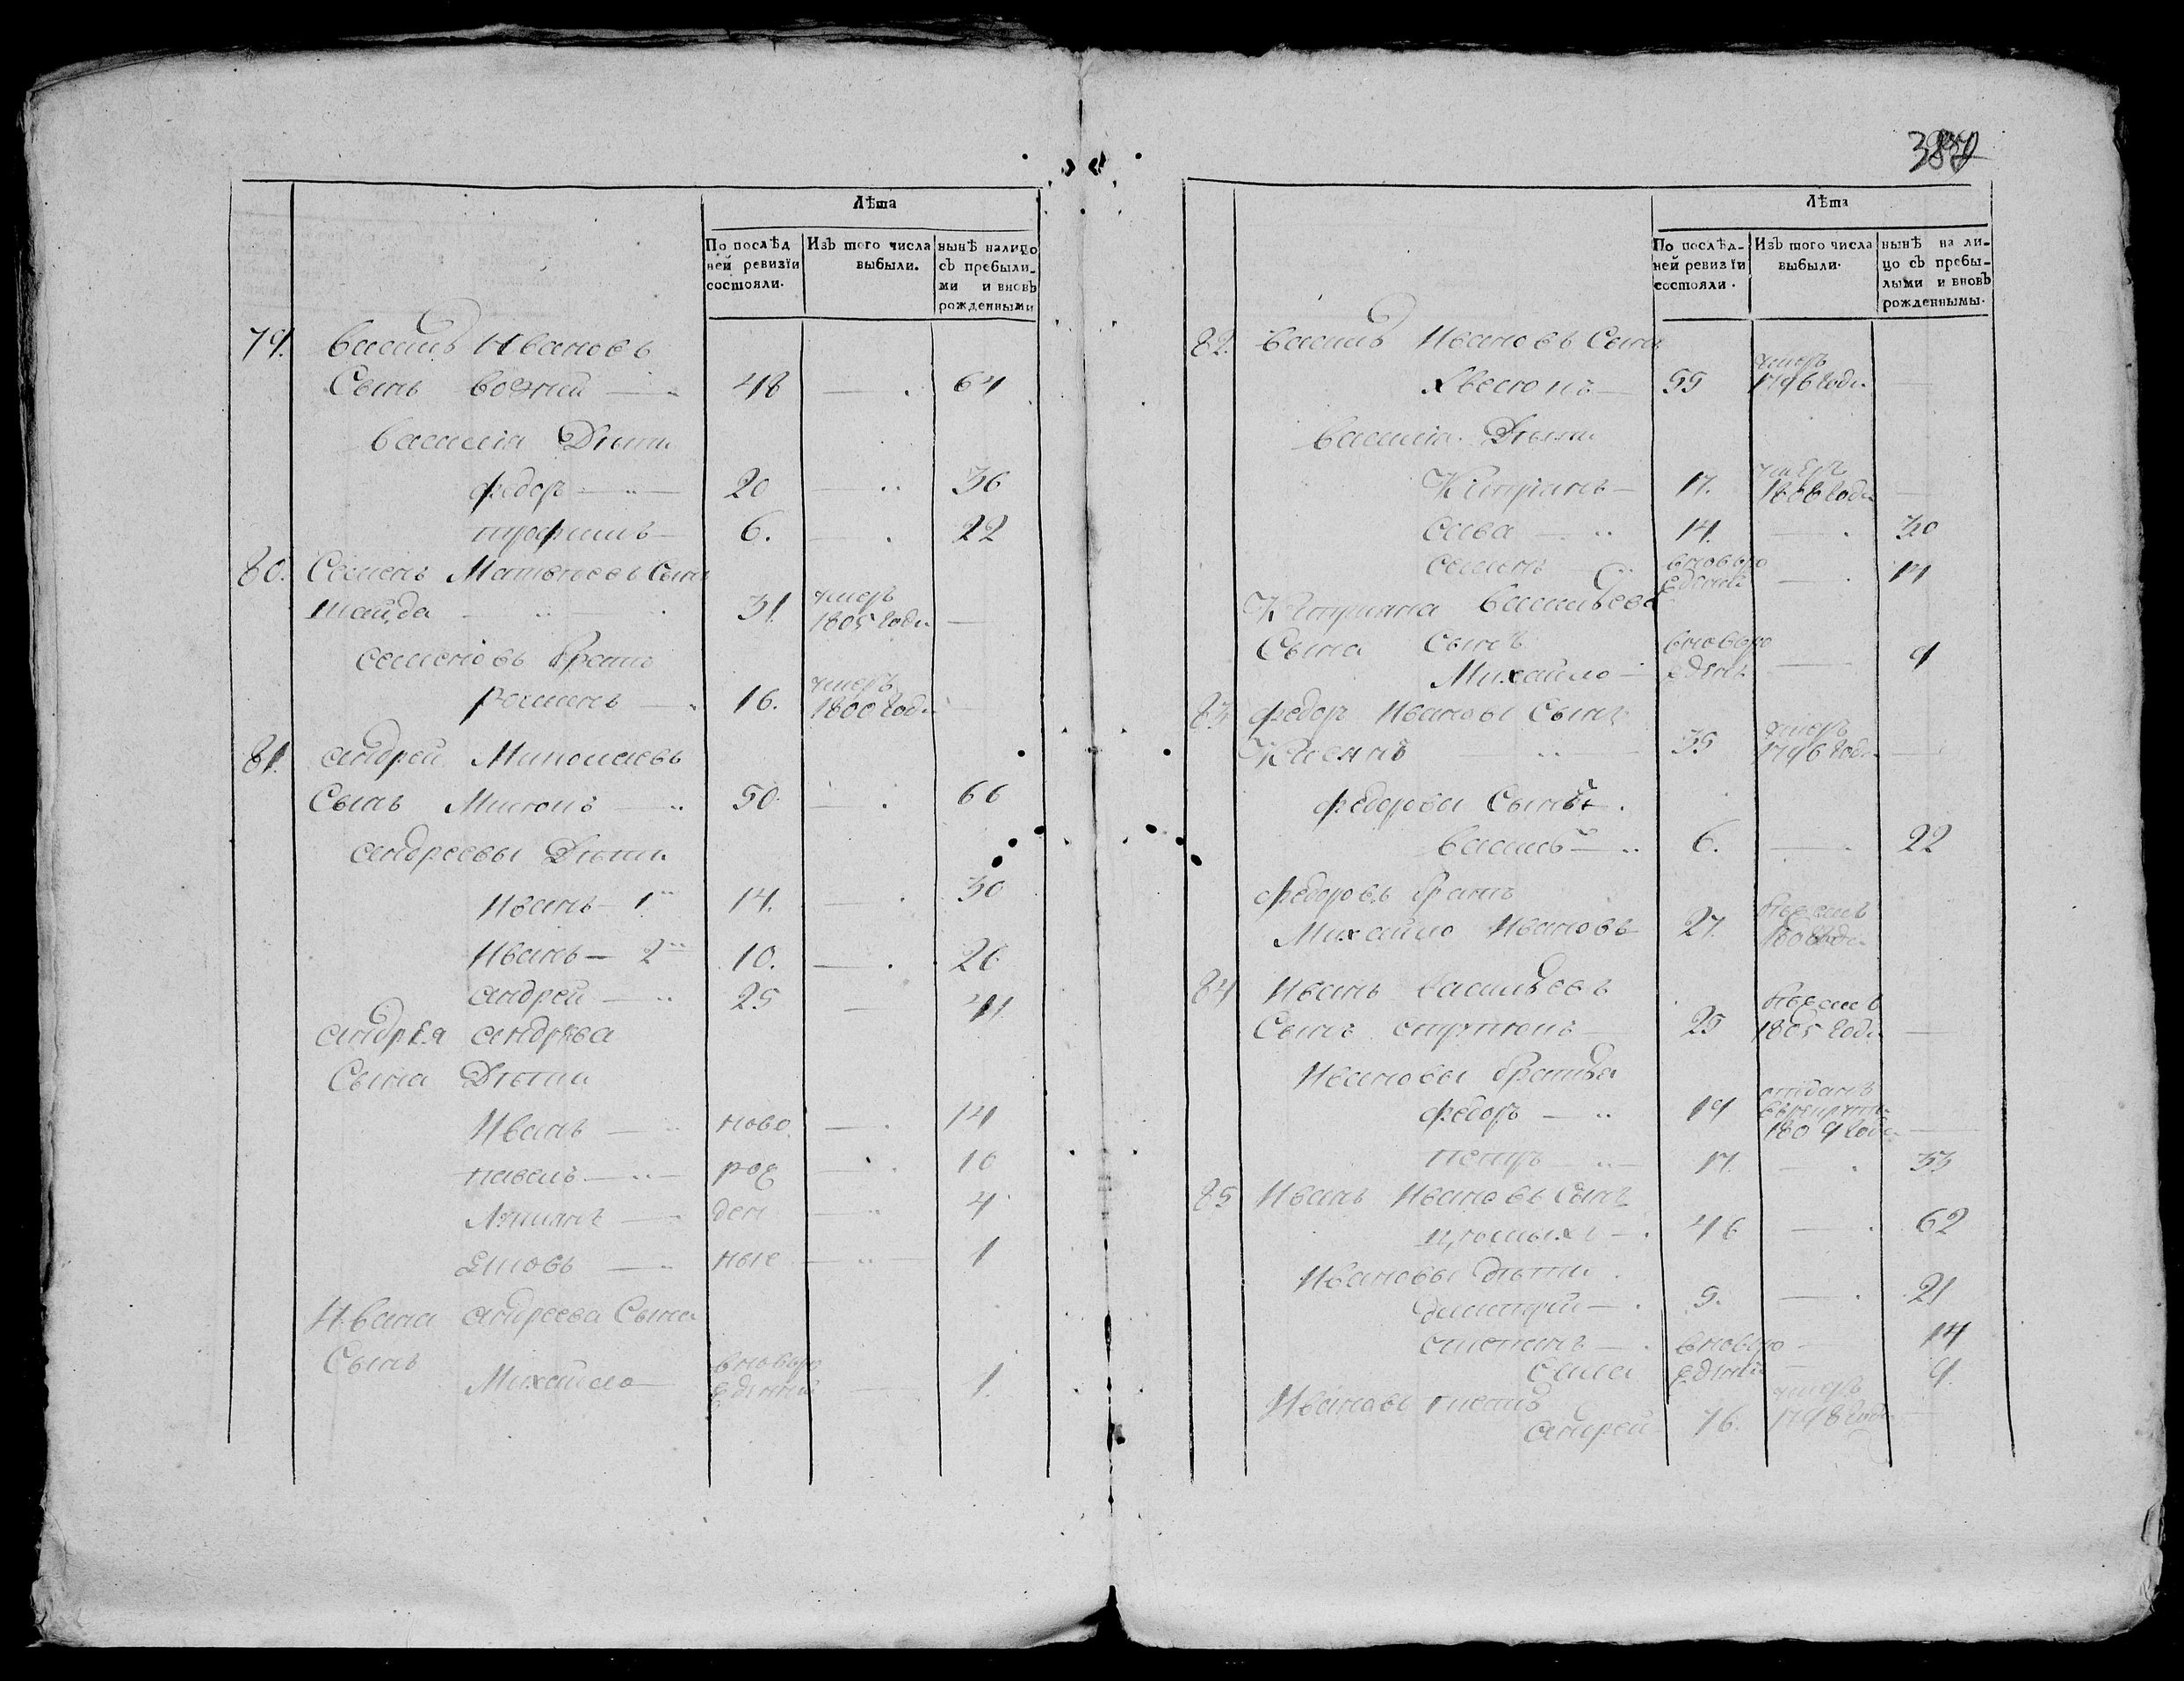 Лѣта
По послѣд
ней ревизїи
состояли.
Изъ того числа
выбыли.
нынѣ налицо
съ пребылы-
ми и вновь
рожденными
79. Василь Ивановъ
Сынъ 48 64
Василïя Дѣти
Федоръ 20 36
трофимъ 6. 22
80. Семенъ Матвѣевъ Сынъ
шайда 31. умеръ
1805 Года
семеновъ братъ
16. умеръ
1800 Года
81. андрей
Сынъ Миронъ 50. 66
андреевы Дѣти
Иванъ 1й 14. 30
Иванъ 2й 10. 26
андрей 25 41
андрея андрѣева
Сына Дѣти
Иванъ ново 14
павелъ рож 10
ден 4
яковъ ные 1
Ивана андреева Сына
Сынъ
Михайло вновьро
жденный 1.
Лѣта
По послѣд-
ней ревизїи
состояли.
Изъ того числа
выбыли.
нынѣ на ли-
цо съ пребы-
лыми и вновь
рожденнымы.
82. Василь Ивановъ Сынъ
55 умеръ
1796 Года
Василïя Дѣти
Кипрïянъ 17. умеръ
1808 Года
сава 14. 30
семенъ вновьро
жденный 14
Кипрïяна Васильева
Сына Сынъ вновьро
Михайло жденъ 9
83. Федоръ Ивановъ Сынъ
35 умеръ
1796 Года
Федоровъ Сынъ
Василь 6. 22
Федоровъ братъ
Михайло Ивановъ 27.
84 Иванъ Васильевъ
Сынъ 25
1805 Года
Ивановы братья
Федоръ 19 отданъ
въ рекруты
1809 Года
петръ 17. 33
85 Иванъ Ивановъ Сынъ
46 62
Ивановы дѣти
дмитрïй 5. 21
степанъ вновьро 14
сава жденный 9
Ивановъ тесть умеръ
андрей 76. 1798 Года